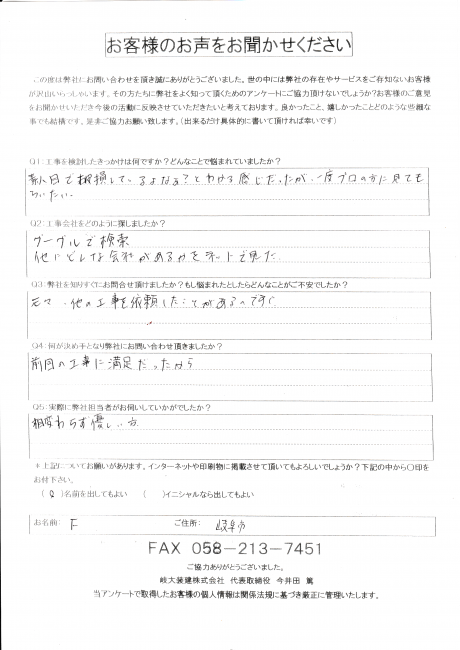 お客様のお声をお聞かせください
この度は弊社にお問い合わせを頂き誠にありがとうございました。世の中には弊社の存在やサービスをご存知ないお客様
が沢山いらっしゃいます。その方たちに弊社をよく知って頂くためのアンケートにご協力頂けないでしょうか?お客様のご意見
をお聞かせいただき今後の活動に反映させていただきたいと考えております。良かったこと、嬉しかったことどのような些細な
事でも結構です。是非ご協力お願い致します。(出来るだけ具体的に書いて頂ければ幸いです)
Q1:工事を検討したきっかけは何ですか?どんなことで悩まれていましたか?
素人目で破損しているよなぁ?とわかる感じだったが、一度プロの方に見ても
らいたい
Q2:工事会社をどのように探しましたか?
グーグルで検索
他にどんな会社があるかをネットで見た
Q3:弊社を知りすぐにお問合せ頂けましたか?もし悩まれたとしたらどんなことがご不安でしたか?
元々、他の工事を依頼したことがあるのですぐ
Q4:何が決め手となり弊社にお問い合わせ頂きましたか?
前回の工事に満足だったから
Q5:実際に弊社担当者がお伺いしていかがでしたか?
相変わらず優しい方
*上記についてお願いがあります。インターネットや印刷物に掲載させて頂いてもよろしいでしょうか?下記の中から〇印を
お付下さい。
( )名前を出してもよい ( )イニシャルなら出してもよい
お名前: F ご住所: 岐阜市
FAX 058-213-7451
ご協力ありがとうございました。
岐大装建株式会社 代表取締役 今井田 篤
当アンケートで取得したお客様の個人情報は関係法規に基づき厳正に管理いたします。